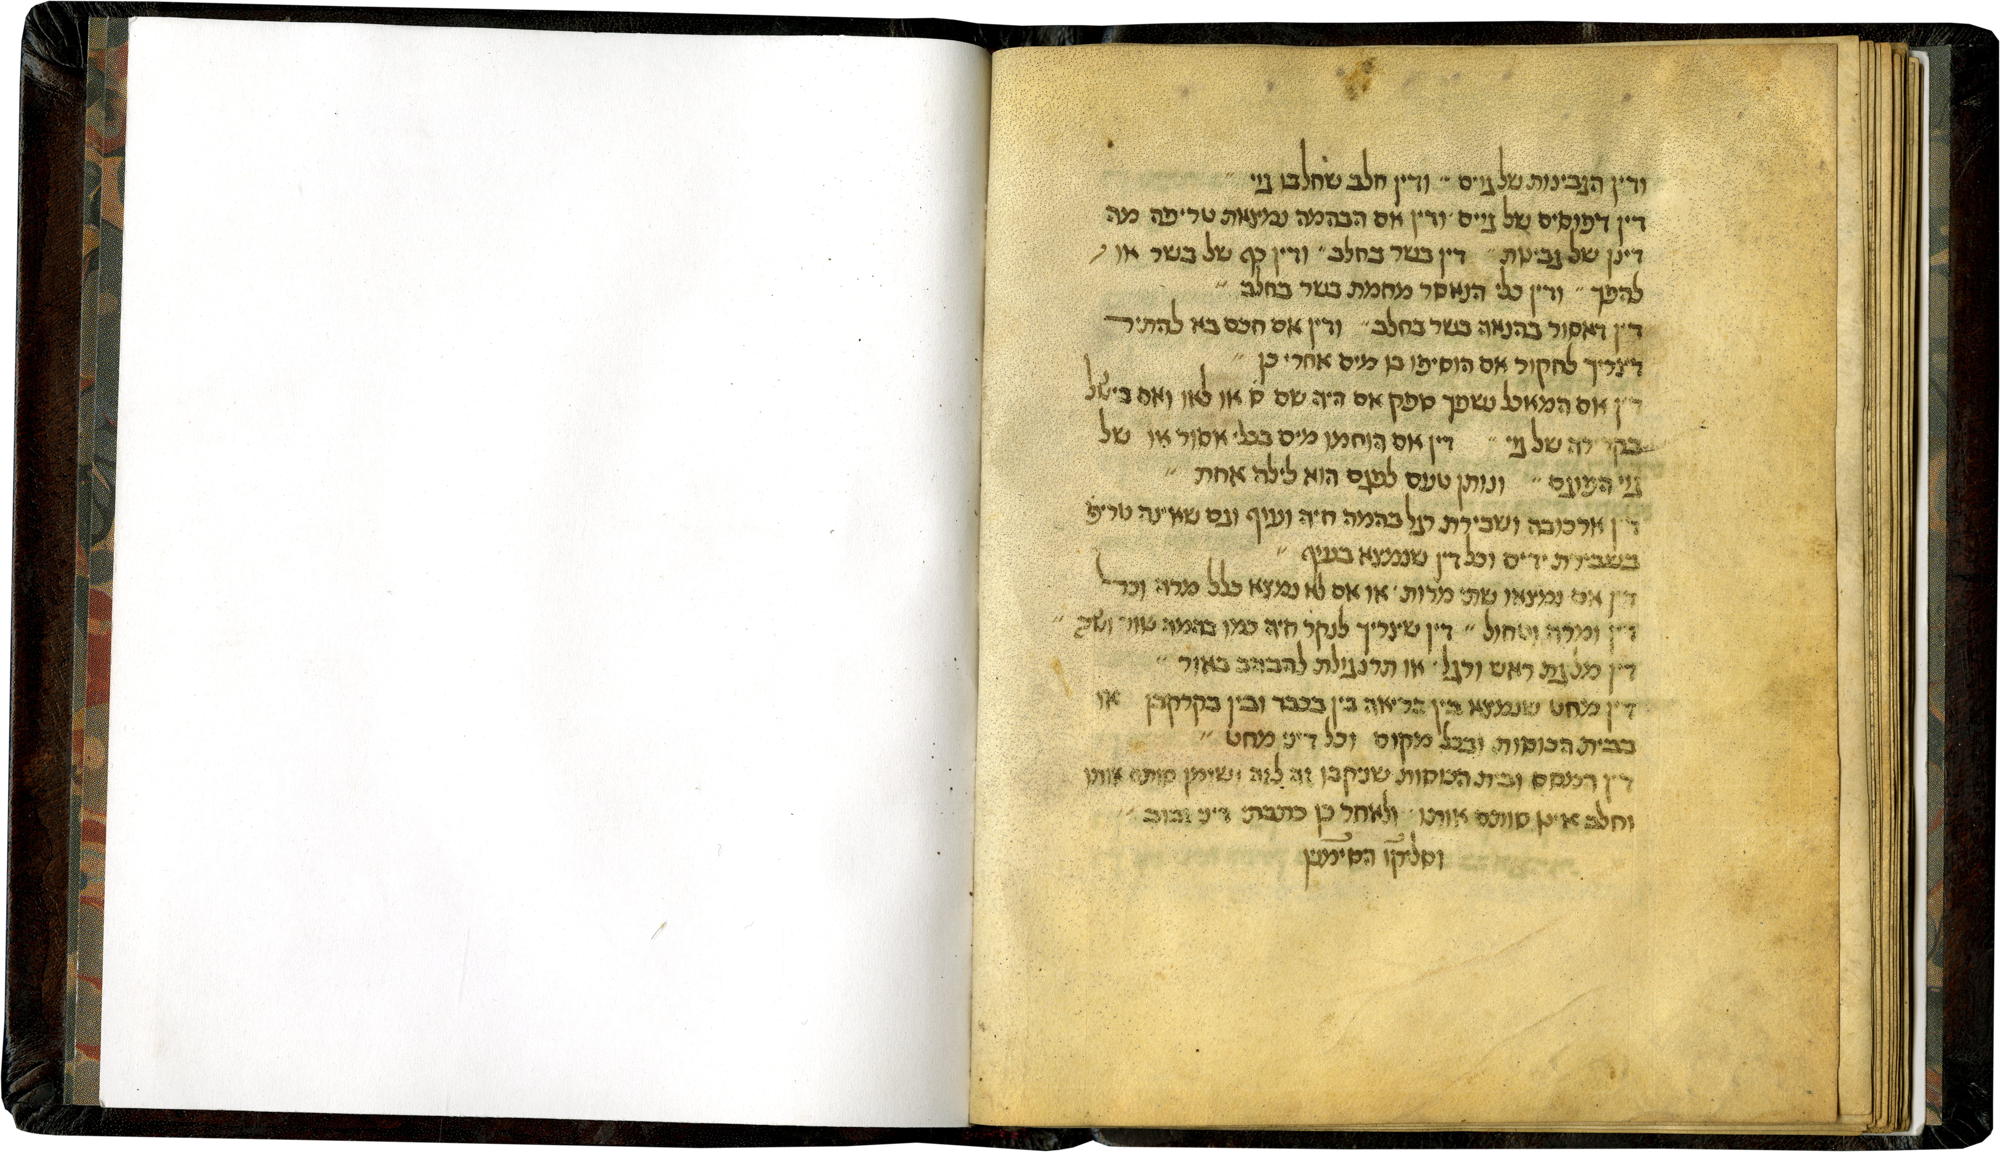 ודין הגבינות של גוים ״ ודין חלב שחלבו גוי ״
דין דפוסים של גוים ודין אם הבהמה נמצאת טריפה מה
דינן של גבינות ״ דין בשר בחלב ״ ודין כף של בשר או
להפך ״ ודין כלי הנאסר מחמת בשר בחלב ״
דין דאסור בהנאה בשר בחלב ״ ודין אם חכם בא להתיר
דצריך לחקור אם הוסיפו בו מים אחרי כן ״
דין אם המאכל נשפך ספק אם היה שם ס׳ או לאו ואם בישל
בקדירה של גוי ״ דין אם הוחמו מים בכלי אסור או של
גוי הפוגם ״ ונותן טעם לפגם הוא לילה אחת ״
דין ארכובה ושבירת רגל בהמה חיה ועוף וגם שאינה טריפ׳
בשבירת ידים וכל דין שנמצא בעוף ״
דין אם נמצאו שתי מרות או אם לא נמצא כלל מרה וכל
דין ומרה וטחול ״ דין שצריך לנקר חיה כמו בהמה ״
דין מליגת ראש ורגל או תרנגולת להבהב באור ״
דין מחט שנמצא בין בריאה בין בכבד ובין בקרקבן או
בבית הכוסות ובכל מקום וכל דיני מחט ״
דין המסס ובית הכוסות שניקבו זה לזה ושומן סותם אותו
וחלב אינו סותם אותו ולאחר כן כתבתי דיני ״
וסליקו הסימנין